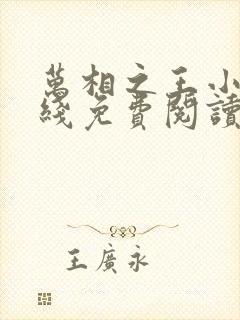 萬相之王小
綫免費閱讀
王廣永